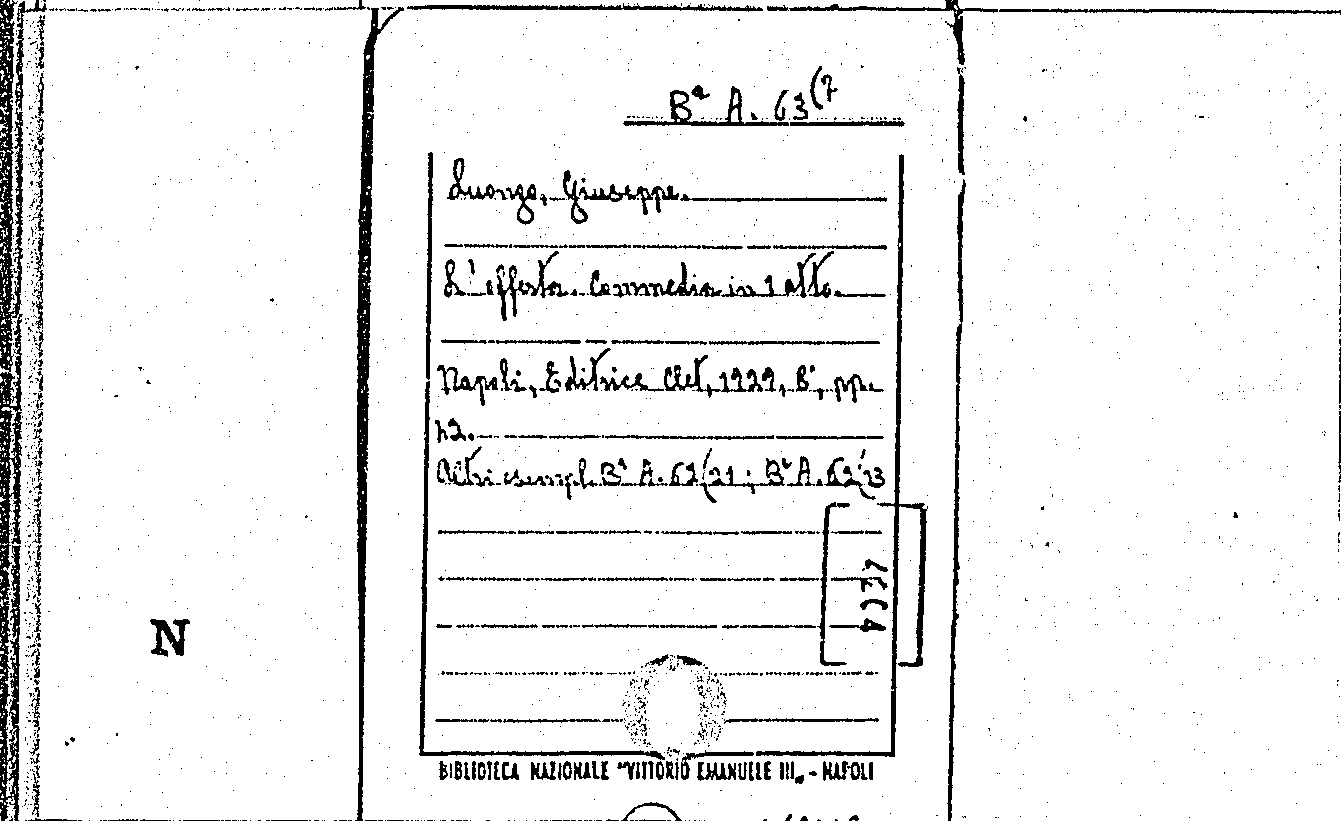 Bª A. 63(7
Luongo, Giuseppe.
L'offerta. Commedia in 1 atto.
Napoli, Editrice Clet, 1929, 8°, pp.
42.
Altri esempl. Bª A. 62(21 ; Bª A. 62(23
N
BIBLIOTECA NAZIONALE "VITTORIO EMANUELE III„ - NAPOLI